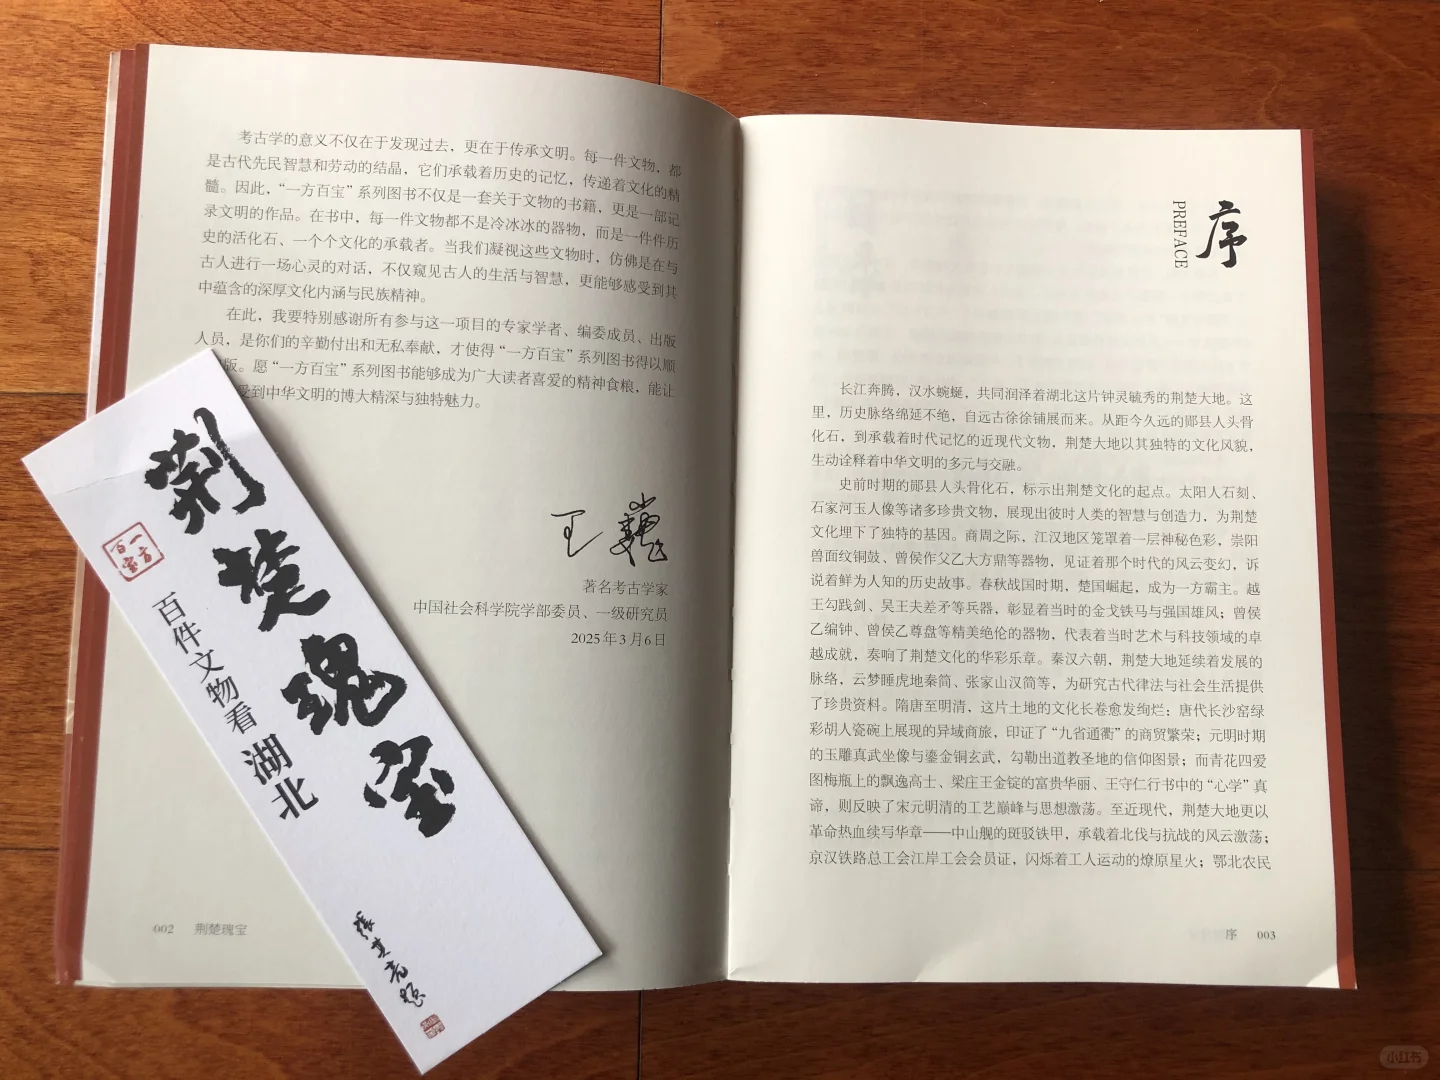 考古学的意义不仅在于发现过去，更在于传承文明。每一件文物，都
是古代先民智慧和劳动的结晶，它们承载着历史的记忆，传递着文化的精
髓。因此，“一方百宝”系列图书不仅是一套关于文物的书籍，更是一部记
录文明的作品。在书中，每一件文物都不是冷冰冰的器物，而是一件件历
史的活化石、一个个文化的承载者。当我们凝视这些文物时，仿佛是在与
古人进行一场心灵的对话，不仅窥见古人的生活与智慧，更能够感受到其
中蕴含的深厚文化内涵与民族精神。
在此，我要特别感谢所有参与这一项目的专家学者、编委成员、出版
人员，是你们的辛勤付出和无私奉献，才使得“一方百宝”系列图书得以顺
版。愿“一方百宝”系列图书能够成为广大读者喜爱的精神食粮，能让
受到中华文明的博大精深与独特魅力。
王巍
著名考古学家
中国社会科学院学部委员、一级研究员
2025年3月6日
002 荆楚瑰宝
荆楚瑰宝
一方百宝
百件文物看湖北
张其亮题
序
PREFACE
长江奔腾，汉水蜿蜒，共同润泽着湖北这片钟灵毓秀的荆楚大地。这
里，历史脉络绵延不绝，自远古徐徐铺展而来。从距今久远的郧县人头骨
化石，到承载着时代记忆的近现代文物，荆楚大地以其独特的文化风貌，
生动诠释着中华文明的多元与交融。
史前时期的郧县人头骨化石，标示出荆楚文化的起点。太阳人石刻、
石家河玉人像等诸多珍贵文物，展现出彼时人类的智慧与创造力，为荆楚
文化埋下了独特的基因。商周之际，江汉地区笼罩着一层神秘色彩，崇阳
兽面纹铜鼓、曾侯作父乙大方鼎等器物，见证着那个时代的风云变幻，诉
说着鲜为人知的历史故事。春秋战国时期，楚国崛起，成为一方霸主。越
王勾践剑、吴王夫差矛等兵器，彰显着当时的金戈铁马与强国雄风；曾侯
乙编钟、曾侯乙尊盘等精美绝伦的器物，代表着当时艺术与科技领域的卓
越成就，奏响了荆楚文化的华彩乐章。秦汉六朝，荆楚大地延续着发展的
脉络，云梦睡虎地秦简、张家山汉简等，为研究古代律法与社会生活提供
了珍贵资料。隋唐至明清，这片土地的文化长卷愈发绚烂：唐代长沙窑绿
彩胡人瓷碗上展现的异域商旅，印证了“九省通衢”的商贸繁荣；元明时期
的玉雕真武坐像与鎏金铜玄武，勾勒出道教圣地的信仰图景；而青花四爱
图梅瓶上的飘逸高士、梁庄王金锭的富贵华丽、王守仁行书中的“心学”真
谛，则反映了宋元明清的工艺巅峰与思想激荡。至近现代，荆楚大地更以
革命热血续写华章——中山舰的斑驳铁甲，承载着北伐与抗战的风云激荡；
京汉铁路总工会江岸工会会员证，闪烁着工人运动的燎原星火；鄂北农民
序 003
小红书